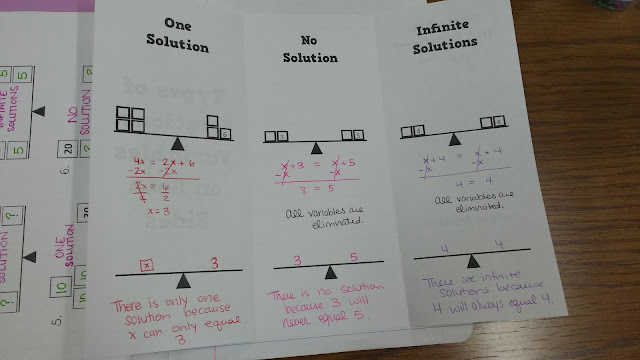 One
Solution
4x = 2x + 6
-2x -2x
2x = 6
2 2
x = 3
x 3
There is only one
solution because
x can only equal
3
No
Solution
x + 3 = x + 5
-x -x
3 = 5
All variables are
eliminated.
3 5
There is no solution
because 3 will
never equal 5.
Infinite
Solutions
x + 4 = x + 4
-x -x
4 = 4
All variables are
eliminated.
4 4
There are infinite
solutions because
4 will always equal 4.
5 5
INFINITE
SOLUTIONS
5 5
6. 20
NO
SOLUTION
?
SOLUTION
?
?
5. 10
ONE
SOLUTION
20